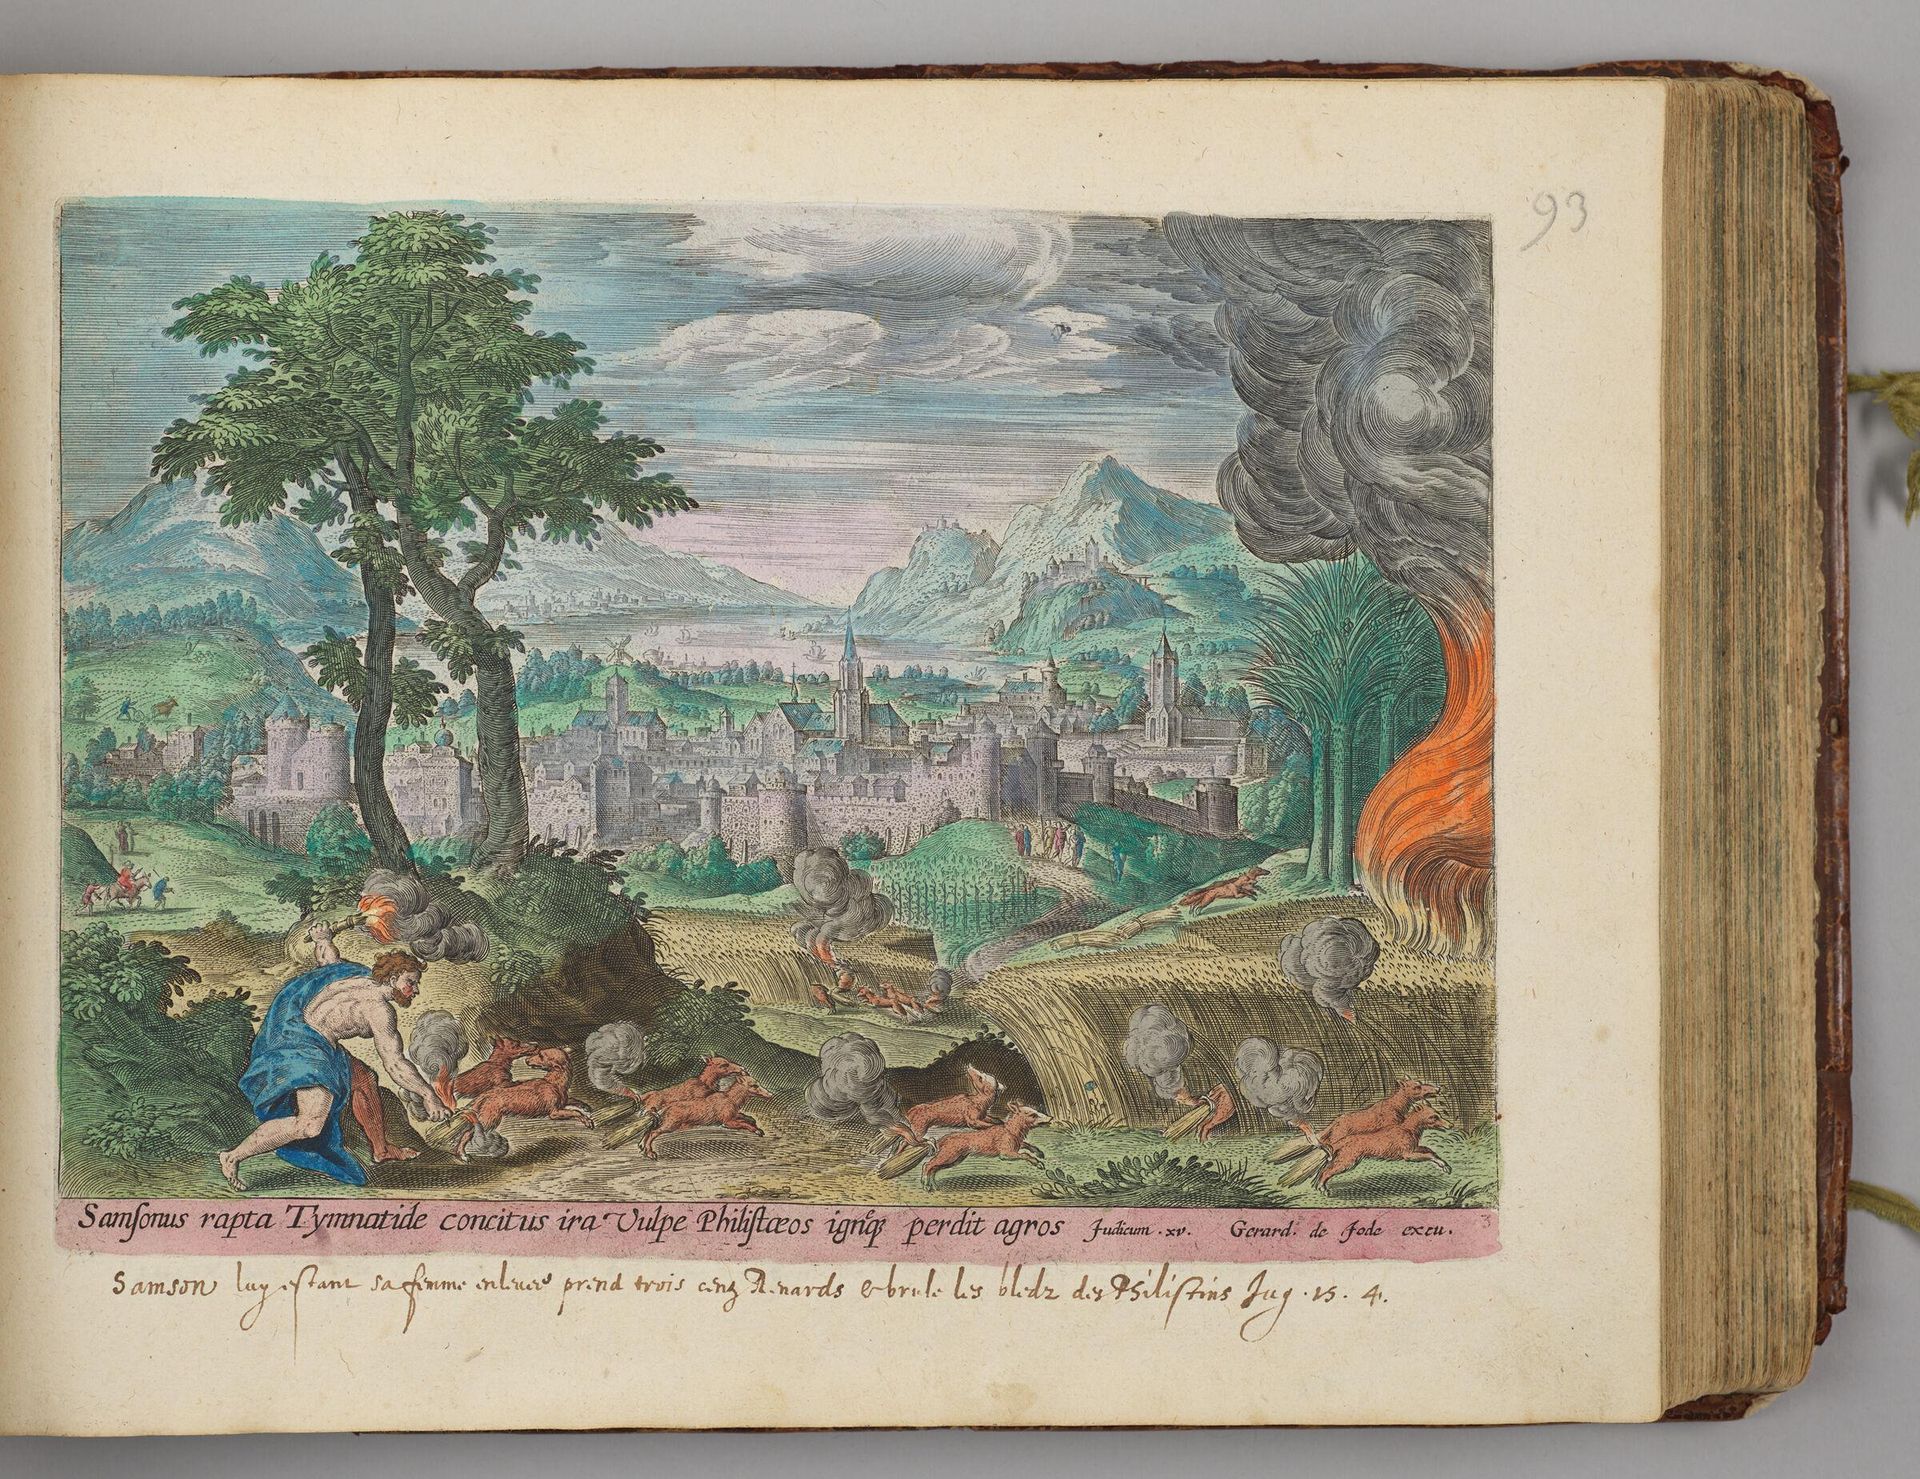 93
Samſonus rapta Tymnatide concitus ira Vulpe Philiſtæos igneq; perdit agros Judicum . xv. Gerard. de Jode excu. 3
Samson luy estant sa femme enlevee prend trois cenz Renards & brule les bledz des Philistins Jug . 15 . 4.